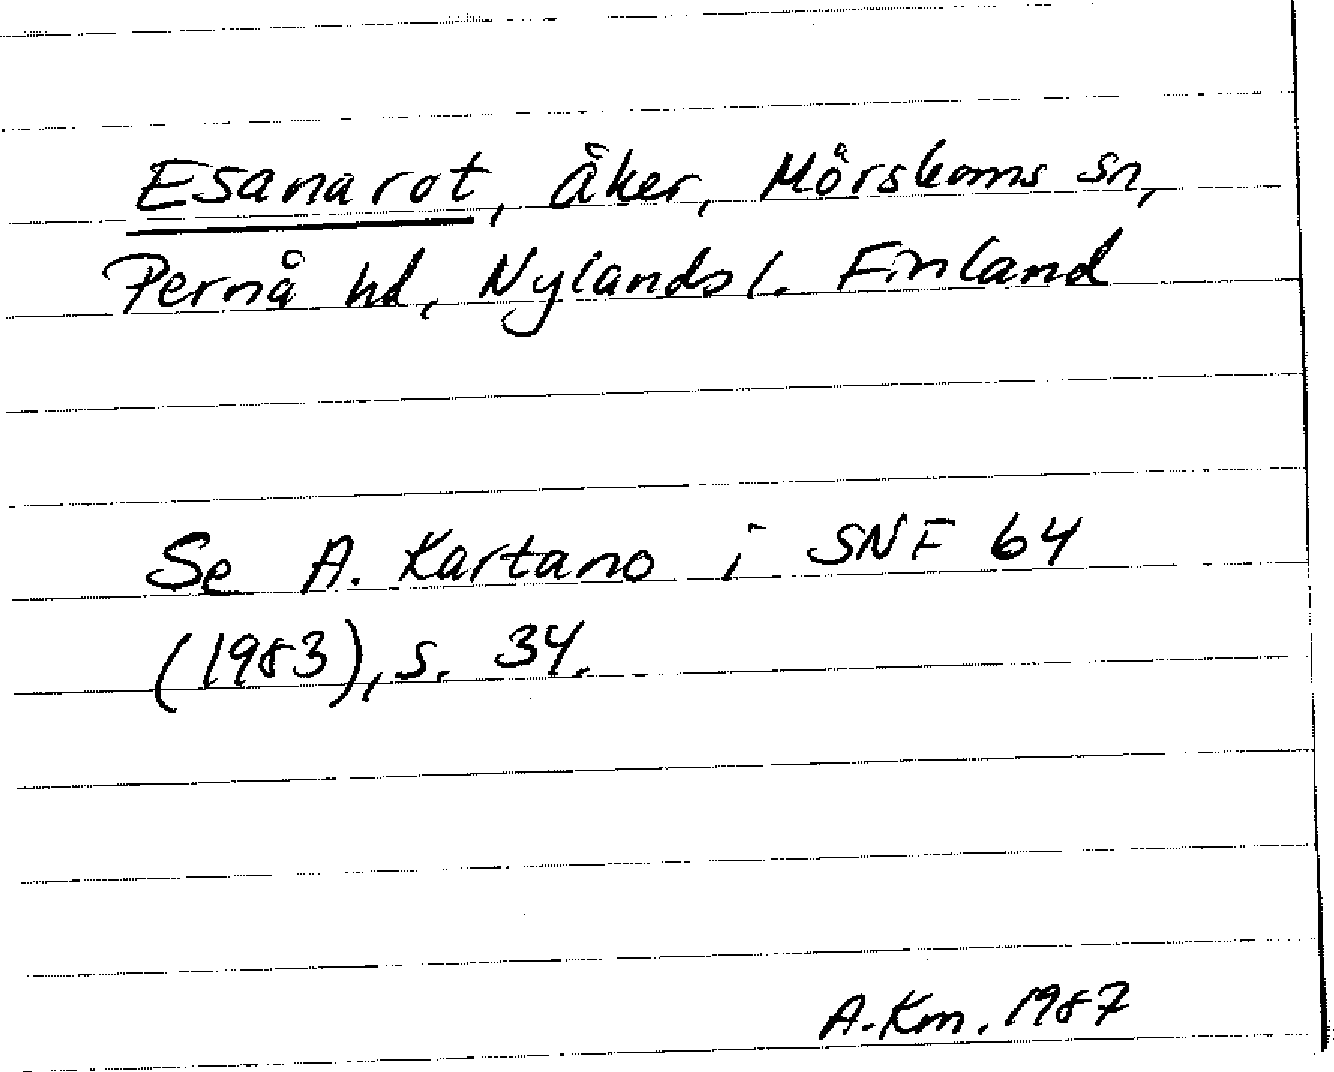 Esanarot, åker, Mörskoms sn,
Pernå hd, Nylands l. Finland
Se A. Kartano i SNF 64
(1983), s. 34.
A-Km. 1987